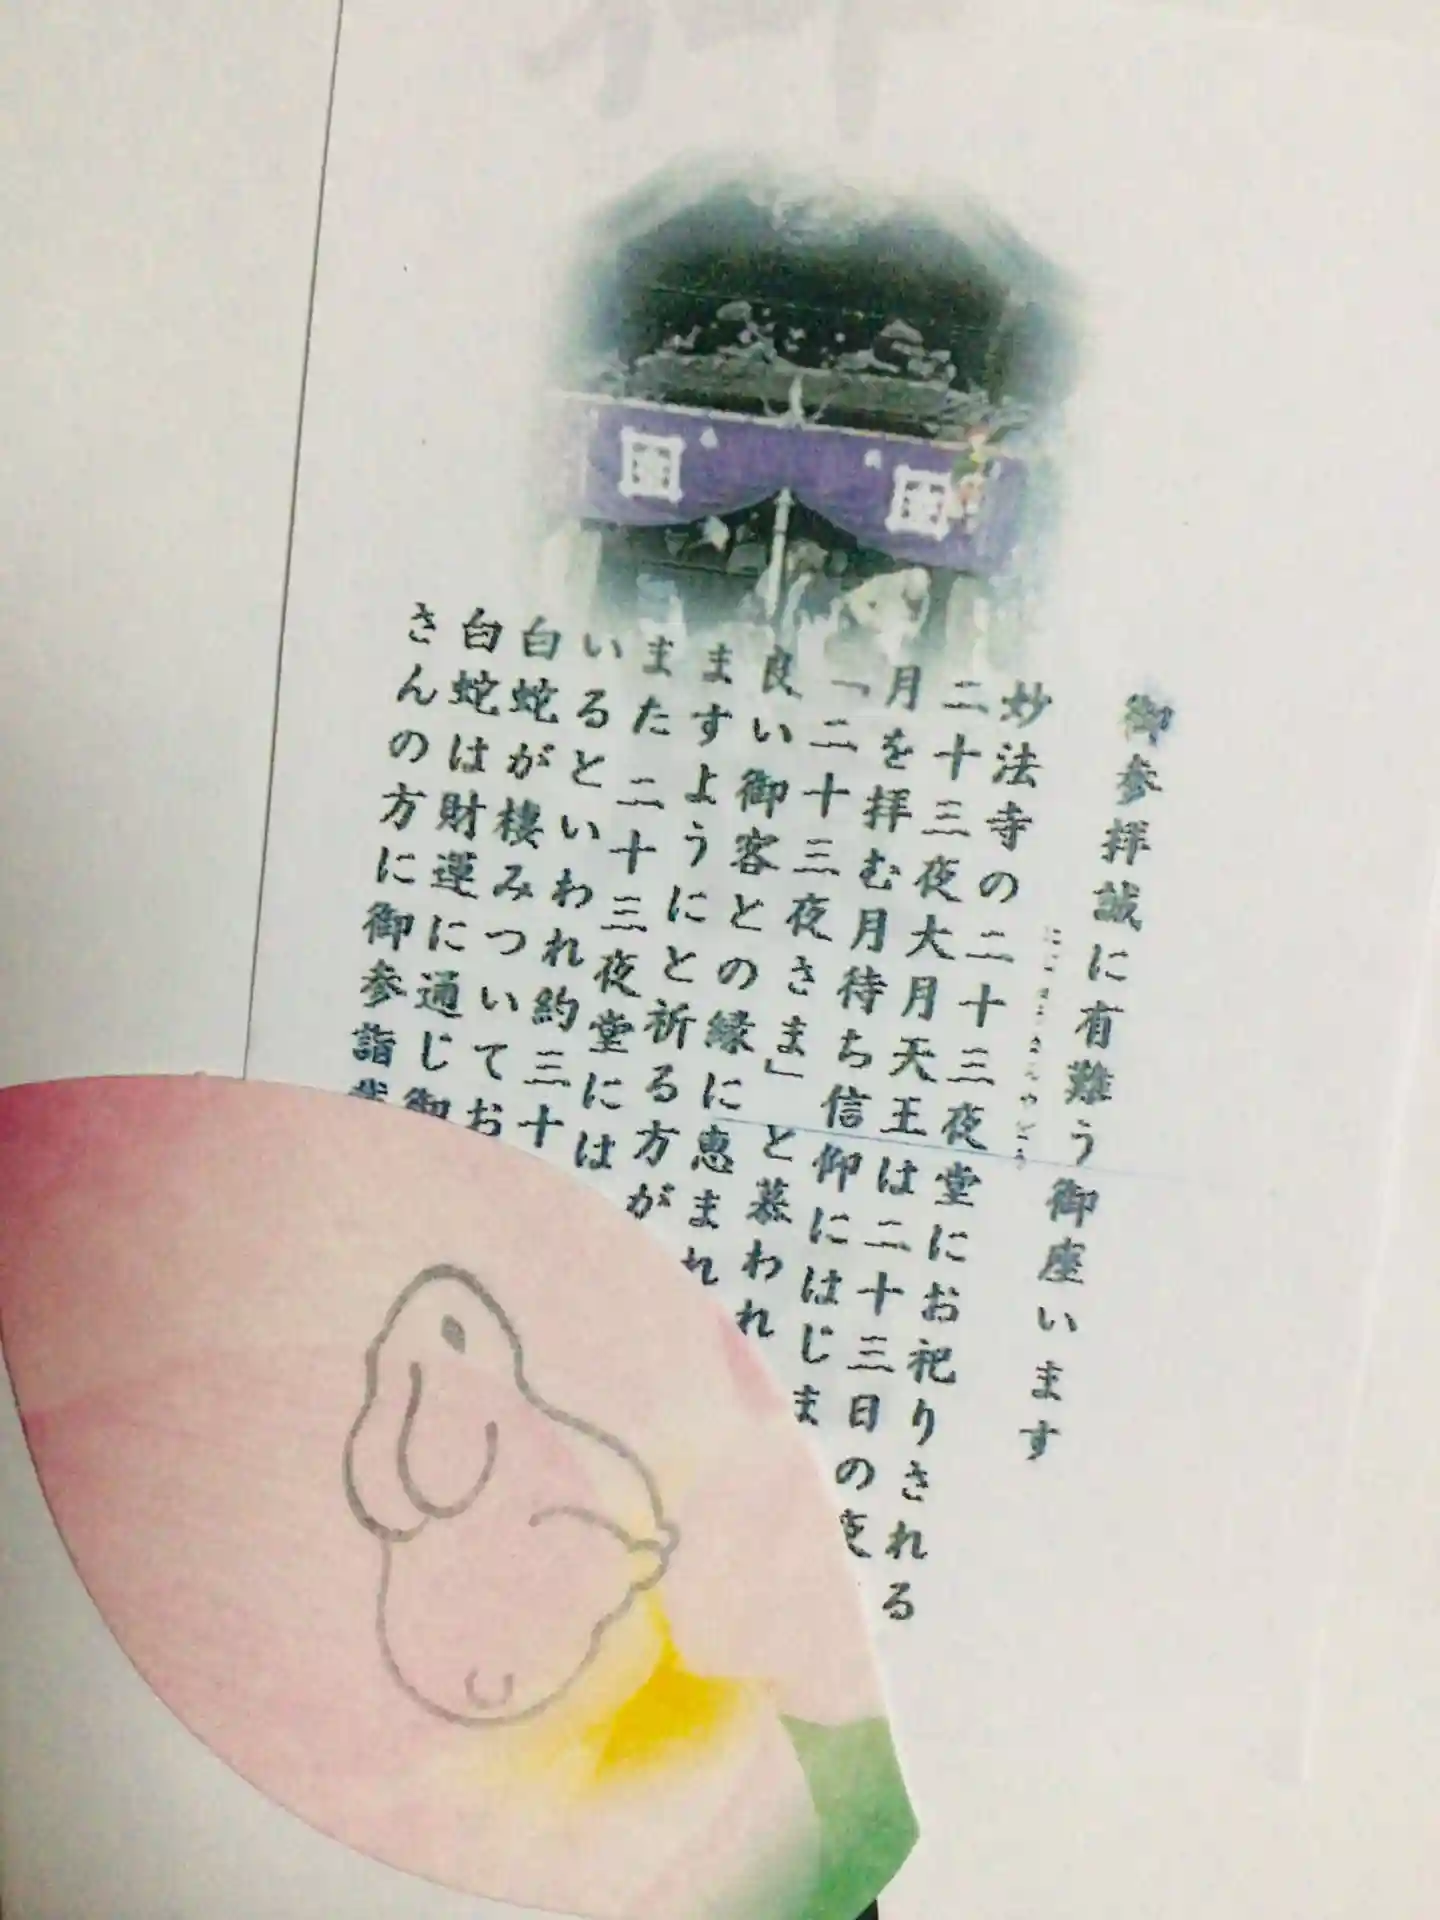 御参拝誠に有難う御座います
妙法寺の二十三夜堂にお祀りされる
にじゅうさんやどう
二十三夜大月天王は二十三日の夜
月を拝む月待ち信仰にはじま
「二十三夜さま」と慕われ
良い御客との縁に恵まれ
ますようにと祈る方が
また 二十三夜堂には
いるといわれ約三十
白蛇が棲みついてお
白蛇は財運に通じ御
さんの方に御参詣